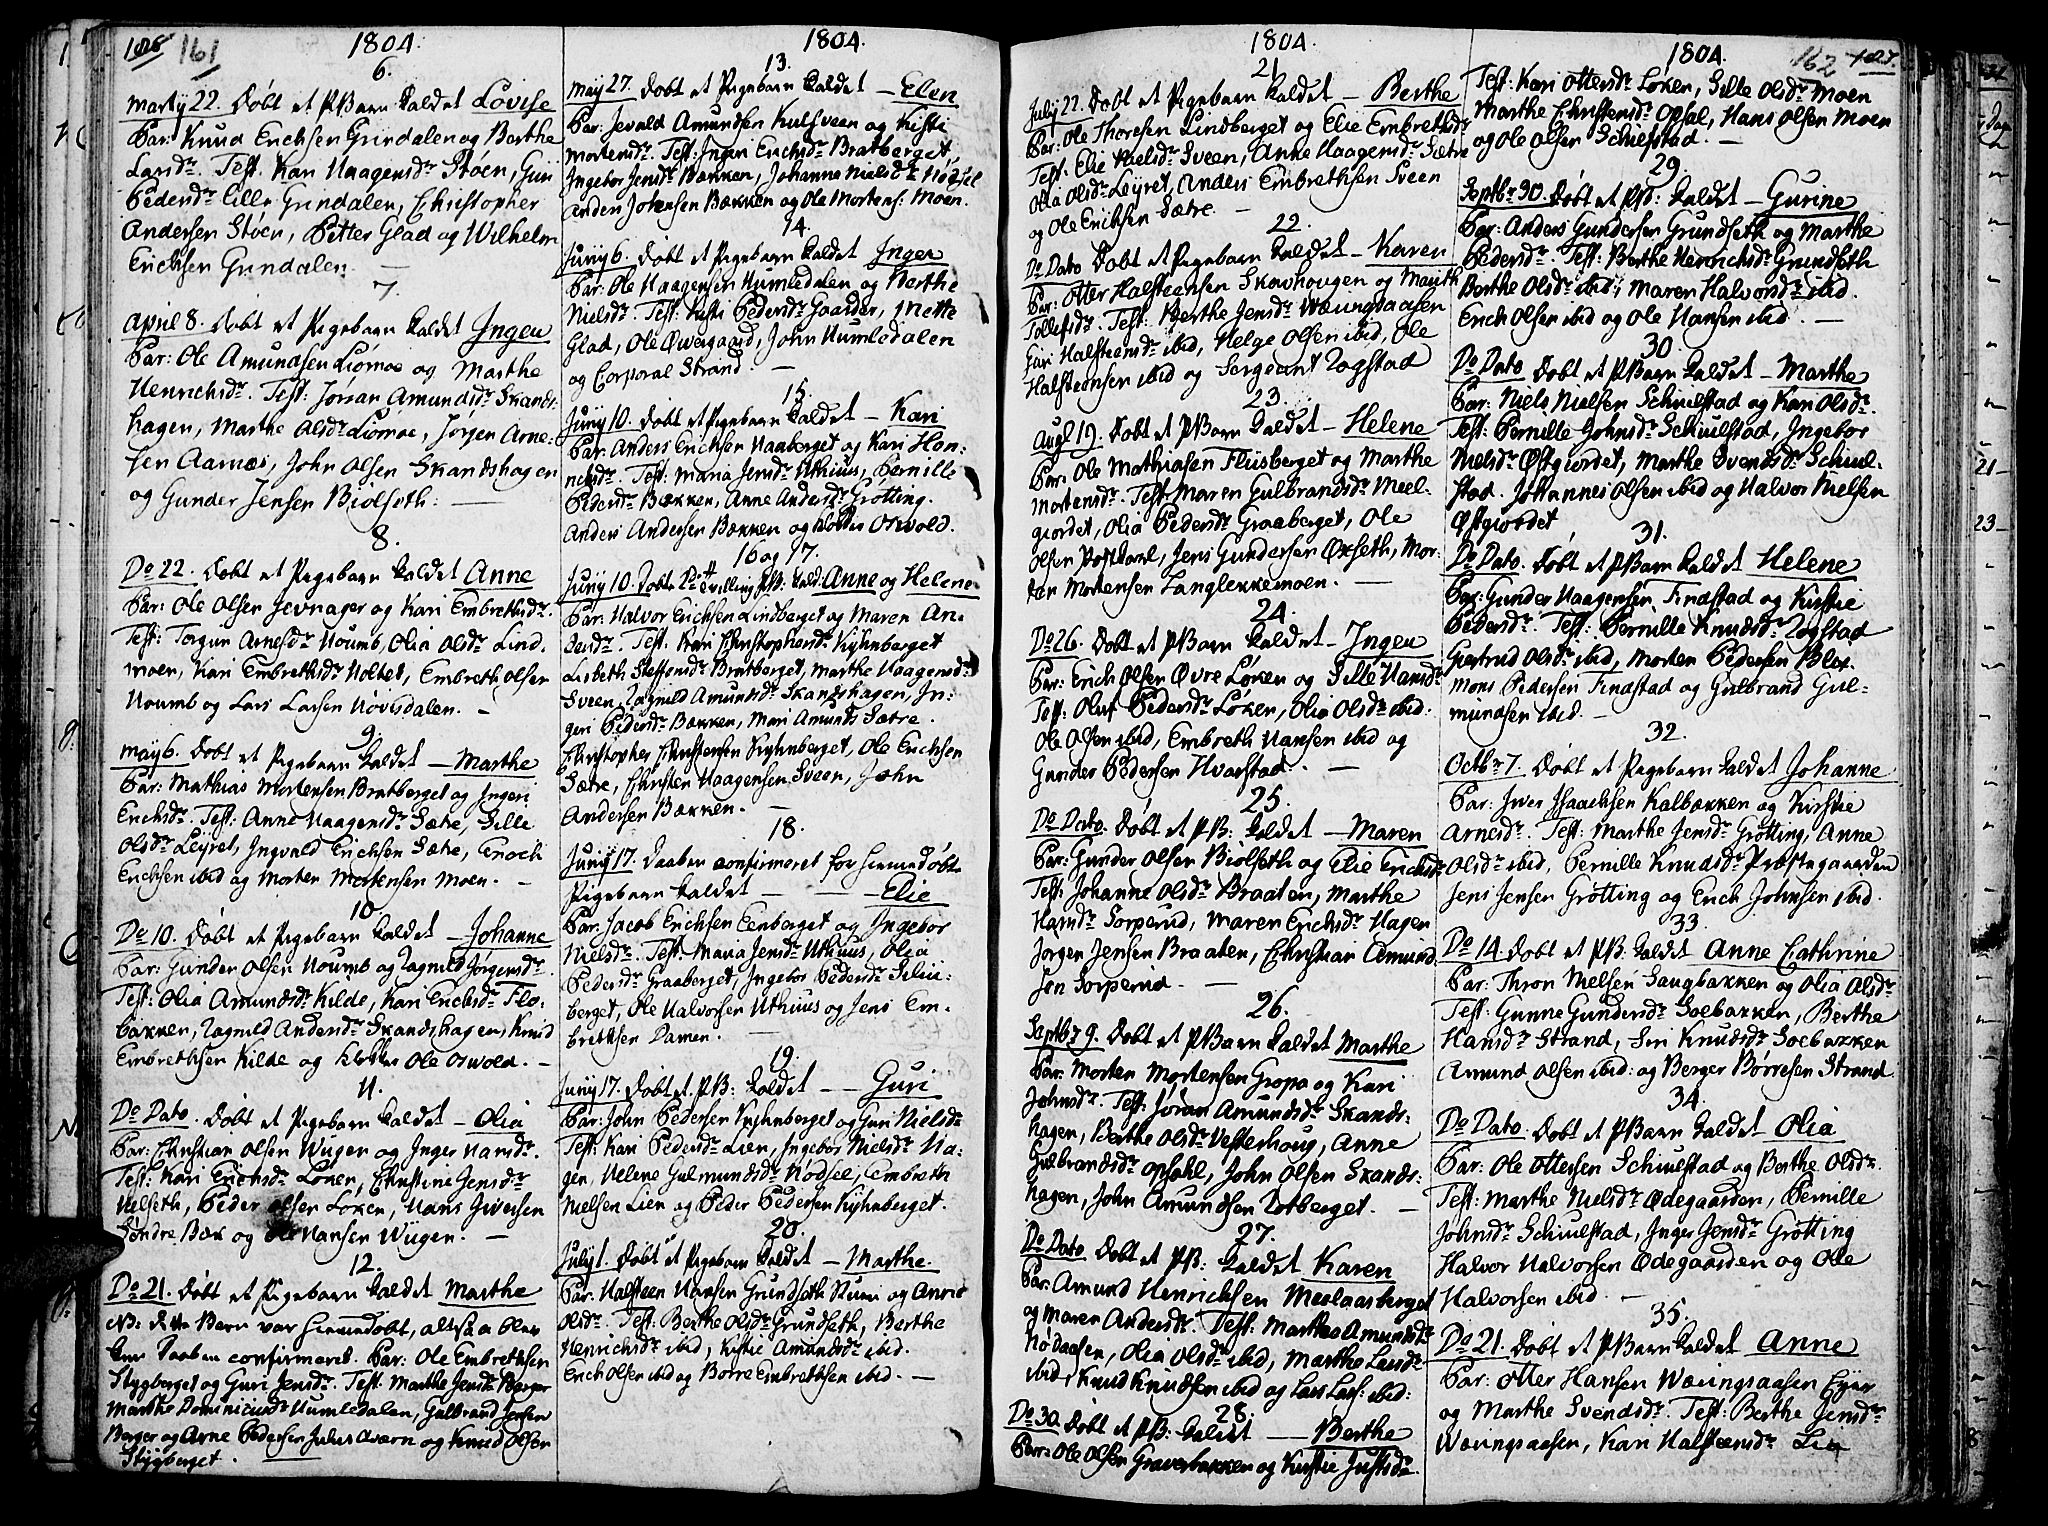 161
1804.
6.
Martij 22. Døbt et PBarn kaldet Lovise
Par: Knud Erichsen Grindalen og Berthe
Larsdr. Test. Kari Haagensdr. Støen, Guri
Pedersdr. Lille Grindalen, Christopher
Andersen Støen, Petter Glad og Wilhelm
Erichsen Grindalen. —
7.
April 8. Døbt et Pigebarn kaldet Ingeri
Par: Ole Amundsen Liømoe og Marthe
Henrichsdr. Test: Jøran Amundsdr. Skands-
hagen, Marthe Olsdr. Liømoe, Jørgen Arne-
sen Aamos, John Olsen Skandshagen
og Gunder Jensen Biølseth: —
8.
Do 22. Døbt et Pigebarn kaldet Anne
Par: Ole Olsen Jevnager og Kari Embrethsdr.
Test: Torgun Arnesdr. Houmb, Olia Olsdr. Lind-
moen, Kari Embrethsdr. Holtet, Embreth Olsen
Houmb og Lars Larsen Høvisdalen. —
9.
May 6. Døbt et Pigebarn kaldet — Marthe
Par: Mathias Mortensen Bratberget og Ingeri
Erichsdr. Test: Anne Haagensdr. Sætre, Sille
Olsdr. Leyret, Ingvald Erichsen Sætre, Enoch
Erichsen ibid og Morten Mortensen Moen. —
10.
Do 10. Døbt et Pigebarn kaldet — Johanne
Par: Gunder Olsen Houmb og Ragnild Jørgensdr.
Test: Olia Amundsdr. Kilde, Kari Erichsdr. Flo-
bakken, Ragnild Andersdr. Skandshagen, Knud
Embrethsen Kilde og Klokker Ole Oswold. —
11.
Do Dato. Døbt et Pigebarn kaldet — Olia
Par: Christian Olsen Wiigen og Inger Hansdr.
Test: Kari Erichsdr. Løken, Christine Jensdr.
Helseth, Peder Olsen Løken, Hans Iversen
Søndre Bæk og Ole Hansen Wiigen. —
12.
Do 21. Døbt et Pigebarn kaldet Marthe
NB: dette Barn var hiemedøbt, altsaa blev
kun Daaben confirmeret. Par: Ole Embrethsen
Stygberget og Guri Jensdr. Test. Marthe Jensdr. Berger
Marthe Dominicusdr. Humledalen, Gulbrand Jensen
Berger og Arne Pedersen Julusaaen og Knud Olsen
Stygberget.
1804.
13.
May 27. Døbt et Pigebarn kaldet — Elen
Par: Jevald Amundsen Kulsveen og Kisti
Mortensdr. Test: Ingeri Erichsdr. Bratberget,
Ingebor Jensdr. Bækken, Johanne Nielsdr. Nødsel
Anders Johansen Bækken og Ole Mortens: Moen.
14.
Junij 6. Døbt et Pigebarn kaldet Inger
Par: Ole Haagensen Humledalen og Berthe
Nielsdr. Test. Kisti Pedersdr. Gaarder, Mette
Glad, Ole Øvergaard, John Humledalen
og Corporal Strand. —
15.
Junij 10. Døbt et Pigebarn kaldet — Kari
Par: Anders Erichsen Haaberget og Kari Hen-
richsdr. Test: Maria Jensdr. Uthuus, Pernille
Pedersdr. Bækken, Anne Andersdr. Grøtting.
Anders Andersen Bækken og Klokker Oswold.
16 og 17.
Junij 10. Døbt 2de tvilling PB. kald. Anne og Helene
Par: Halvor Erichsen Lindberget og Maren An-
dersdr. Test. Kari Christophersdr. Kyhnberget
Lisbeth Steffensdr. Bratberget, Marthe Haagensdr.
Sveen, Ragnild Amundsdr. Skandshagen, In-
geri Pedersdr. Bækken, Mari Amunds Sætre.
Christopher Christensen Kyhnberget, Ole Erichsen
Sætre, Christen Haagensen Sveen, John
Andersen Bækken. —
18.
Junij 17. Daaben confirmeret for hiemmedøbt
Pigebarn kaldet — Elie
Par: Jacob Erichsen Eenberget og Ingebor
Nielsdr. Test: Maria Jensdr. Uthuus, Olia
Pedersdr. Graaberget, Ingebor Pedersdr. Siliu-
berget, Ole Halvorsen Uthuus og Jens Em-
brethsen Damen. —
19.
Junij 17. Døbt et PB: kaldet — Guri
Par: John Pedersen Kyhnberget og Guri Nielsdr.
Test: Kari Pedersdr. Lien, Ingebor Nielsdr. Ha-
gen, Helene Gulmundsdr. Nødsel, Embreth
Nielsen Lien og Peder Pedersen Kyhnberget.
20.
July 1. Døbt et Pigebarn kaldet — Marthe.
Par: Halsteen Hansen Grundseth Stuen og Anne
Olsdr. Test: Berthe Olsdr. Grundseth, Berthe
Henrichsdr. ibid, Kistie Amundsdr. ibid.
Erich Olsen ibid og Børre Embrethsen ibid. —
1804.
21.
July 22. Døbt et Pigebarn kaldet — Berthe
Par: Ole Thoresen Lindberget og Elie Embrethsdr.
Test. Elie Nielsdr. Sveen, Anne Haagensdr. Sætre
Olia Olsdr. Leyret, Anders Embrethsen Sveen
og Ole Erichsen Sætre. —
22.
Do Dato Døbt et Pigebarn kaldet — Karen
Par: Otter Halsteensen Skavhougen og Marith
Tollefsdr. Test: Berthe Jensdr. Wæringsaasen
Guri Halsteensdr. ibid, Helge Olsen ibid, Ole
Halsteensen ibid og Sergeant Rogstad
23.
Augl. 19. Døbt et PBarn kaldet — Helene
Par: Ole Mathiasen Fliisberget og Marthe
Mortensdr. Test. Maren Gulbrandsdr. Meel-
giordet, Olia Pedersdr. Graaberget, Ole
Olsen Postkarl, Jens Gundersen Øxseth, Mor-
ten Mortensen Langlekkemoen. —
24.
Do 26. Døbt et PBarn kaldet — Ingeri
Par: Erich Olsen Øvre Løken og Sille Hansdr.
Test: Oluf Pedersdr. Løken, Olia Olsdr. ibid:
Ole Olsen ibid, Embreth Hansen ibid og
Gunder Pedersen Hvarstad. —
25.
Do Dato. Døbt et PB: kaldet — Maren
Par: Gunder Olsen Biølseth og Elie Erichsdr.
Test: Johanne Olsdr. Braaten, Marthe
Hansdr. Sorperud, Maren Erichsdr. Hagen
Jørgen Jensen Braaten, Christian Amund-
sen Sorperud. —
26.
Septbr 9. Døbt et PBarn kaldet Marthe
Par: Morten Mortensen Gropa og Kari
Johnsdr. Test: Jøran Amundsdr. Skands-
hagen, Berthe Olsdr. Vesterhoug, Anne
Gulbrandsdr. Opsahl, John Olsen Skands-
hagen, John Amundsen Rotberget. —
27.
Do Dato. Døbt et PB: kaldet Karen
Par: Amund Henrichsen Meolaasberget
og Maren Andersdr. Test: Marthea Amundsdr.
Nødaasen, Olia Olsdr. ibid, Marthe Larsdr.
ibid, Knud Knudsen ibid og Lars Lars: ibid:
28.
Do 30. Døbt et PB: kaldet — Berthe
Par: Ole Olsen Graverbakken og Kirstie Justsdr.
1804.
162
Test: Kari Ottersdr. Løken, Sille Olsdr. Moen
Marthe Christensdr. Opsal, Hans Olsen Moen
og Ole Olsen Schiefstad. —
29.
Septbr 30. Døbt et PB: kaldet — Gurine
Par: Anders Gundersen Grundseth og Marthe
Pedersdr. Test: Berthe Henrichsdr. Grundseth
Berthe Olsdr. ibid, Maren Halvorsdr. ibid.
Erich Olsen ibid og Ole Hansen ibid. —
30.
Do Dato Døbt et PBarn kaldet — Marthe
Par: Niels Nielsen Schiulstad og Kari Olsdr.
Test: Pernille Johnsdr. Schiulstad, Ingebor
Nielsdr. Østgiordet, Marthe Svendsdr. Schiul-
stad. Johannes Olsen ibid og Halvor Nielsen
Østgiordet
31.
Do Dato. Døbt et PBarn kaldet Helene
Par: Gunder Haagensen Findstad og Kirstie
Pedersdr. Test: Pernille Knudsdr. Rogstad
Giertrud Olsdr. ibid, Morten Pedersen Blix
Mons Pedersen Findstad og Gulbrand Gul-
mundsen ibid. —
32.
Octbr 7. Døbt et Pigebarn kaldet Johanne
Par: Iver Isaachsen Kalbækken og Kirstie
Arnesdr. Test: Marthe Jensdr. Grøtting, Anne
Olsdr. ibid, Pernille Knudsdr. Præstegaarden
Jens Jensen Grøtting og Erich Johnsen ibid.
33.
Do 14. Døbt et PB: kaldet Anne Cathrine
Par: Thron Nielsen Saugbakken og Olia Olsdr.
Test: Gunne Gundersdr. Soebakken, Berthe
Hansdr. Strand, Siri Knudsdr. Soebakken
Amund Olsen ibid: og Berger Børresen Strand.
34.
Do Dato. Døbt et PBarn kaldet Olia
Par: Ole Ottersen Schiulstad og Berthe Olsdr.
Test: Marthe Nielsdr. Ødegaarden, Pernille
Johnsdr. Schiulstad, Inger Jensdr. Grøtting
Halvor Halvorsen Ødegaarden og Ole
Halvorsen ibid. —
35.
Do 21. Døbt et PBarn kaldet Anne
Par: Otter Hansen Wæringsaasen Eyer
og Marthe Svendsdr. Test: Berthe Jensdr.
Wæringsaasen, Kari Halsteensdr. Lia